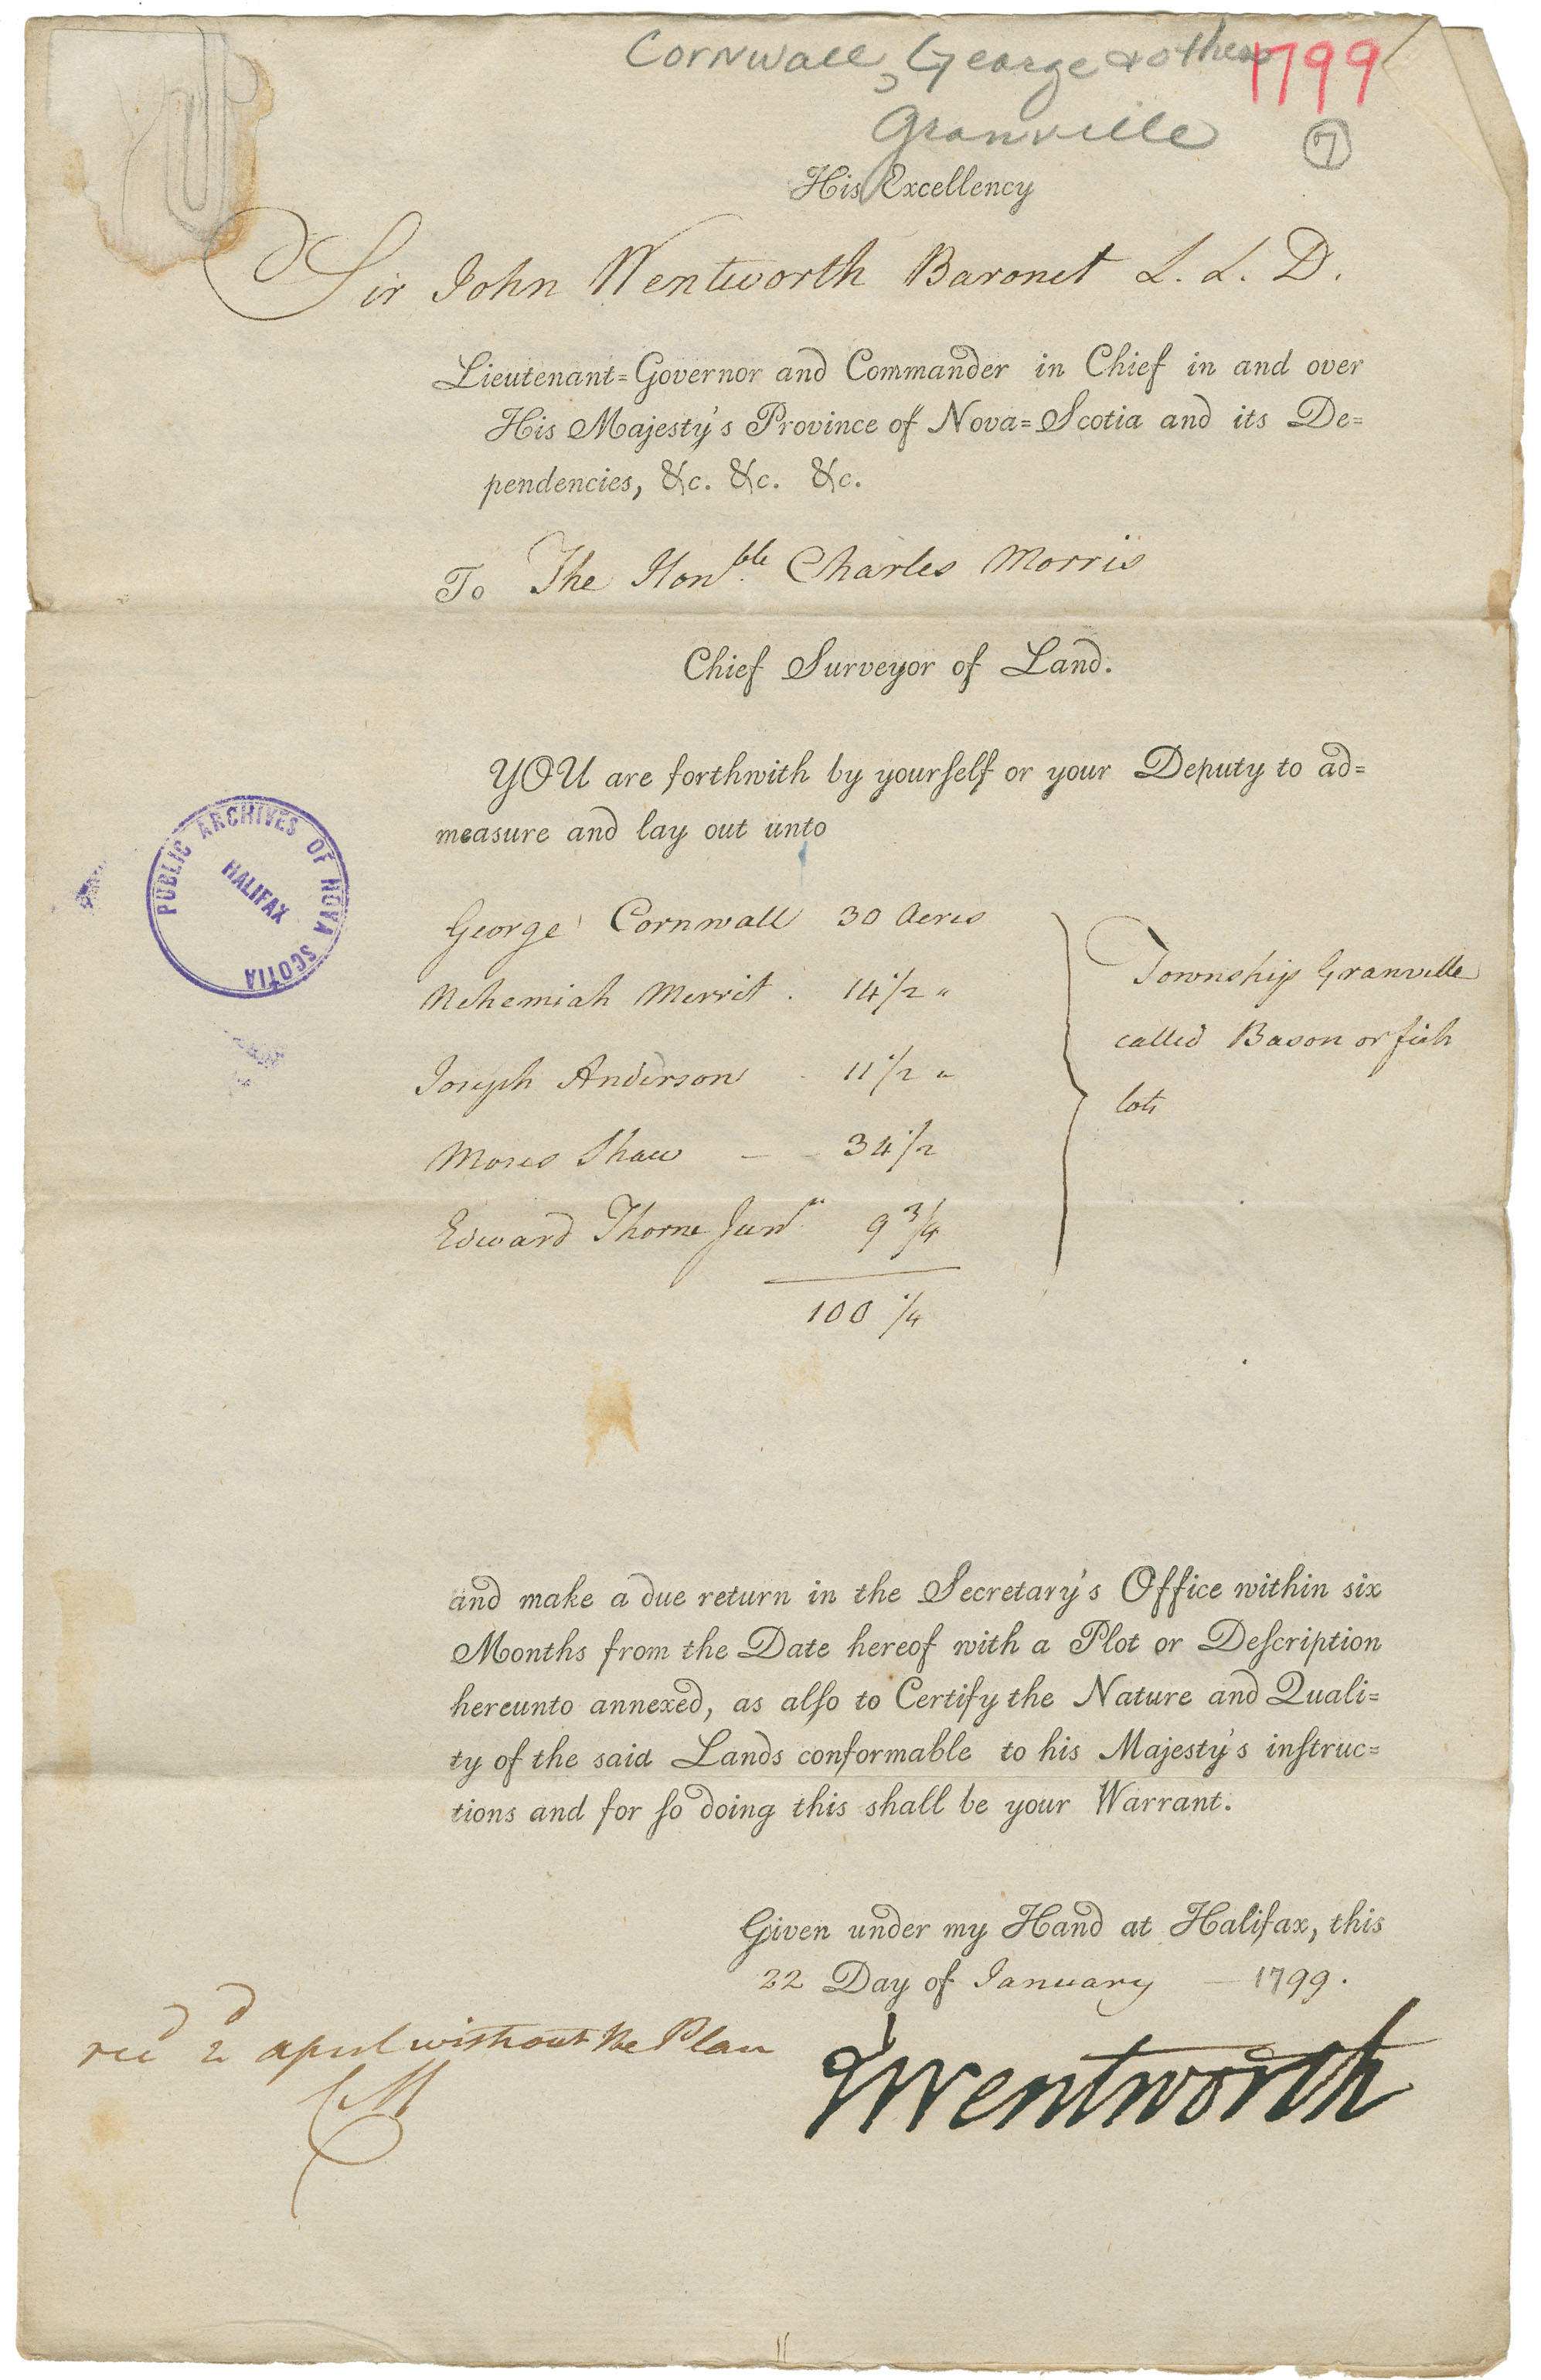 Cornwall, George & others
1799
Granville
7
His Excellency
Sir John Wentworth Baronet L. L. D.
Lieutenant=Governor and Commander in Chief in and over
His Majesty's Province of Nova=Scotia and its De=
pendencies, &c. &c. &c.
To The Honble Charles Morris
Chief Surveyor of Land.
YOU are forthwith by yourſelf or your Deputy to ad=
measure and lay out unto
PUBLIC ARCHIVES OF NOVA SCOTIA
HALIFAX
George Cornwall 30 Acres
Nehemiah Merrit . 14 1/2 "
Joseph Anderson - 11 1/2 "
Moses Shaw — - 34 1/2
Edward Thorne Junr 9 3/4
100 1/4
Township Granville
called Bason or fish
lots
and make a due return in the Secretary's Office within six
Months from the Date hereof with a Plot or Deſcription
hereunto annexed, as alſo to Certify the Nature and Quali=
ty of the said Lands conformable to his Majesty's inſtruc=
tions and for ſo doing this shall be your Warrant.
Given under my Hand at Halifax, this
22 Day of January — 1799.
recd 2d april without the Plan
CM
J Wentworth